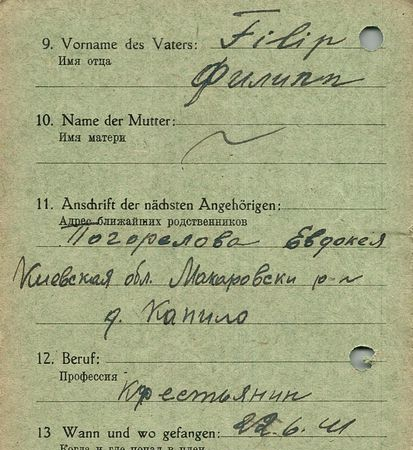 9. Vorname des Vaters: Filip
Имя отца
Филипп
10. Name der Mutter: ~
Имя матери
11. Anschrift der nächsten Angehörigen:
Адрес ближайших родственников
Погорелова Евдокея
Киевская обл. Макаровски р-н
д. Капило
12. Beruf:
Профессия
Крестьянин
13 Wann und wo gefangen: 22.6.41
Когда и где попал в плен